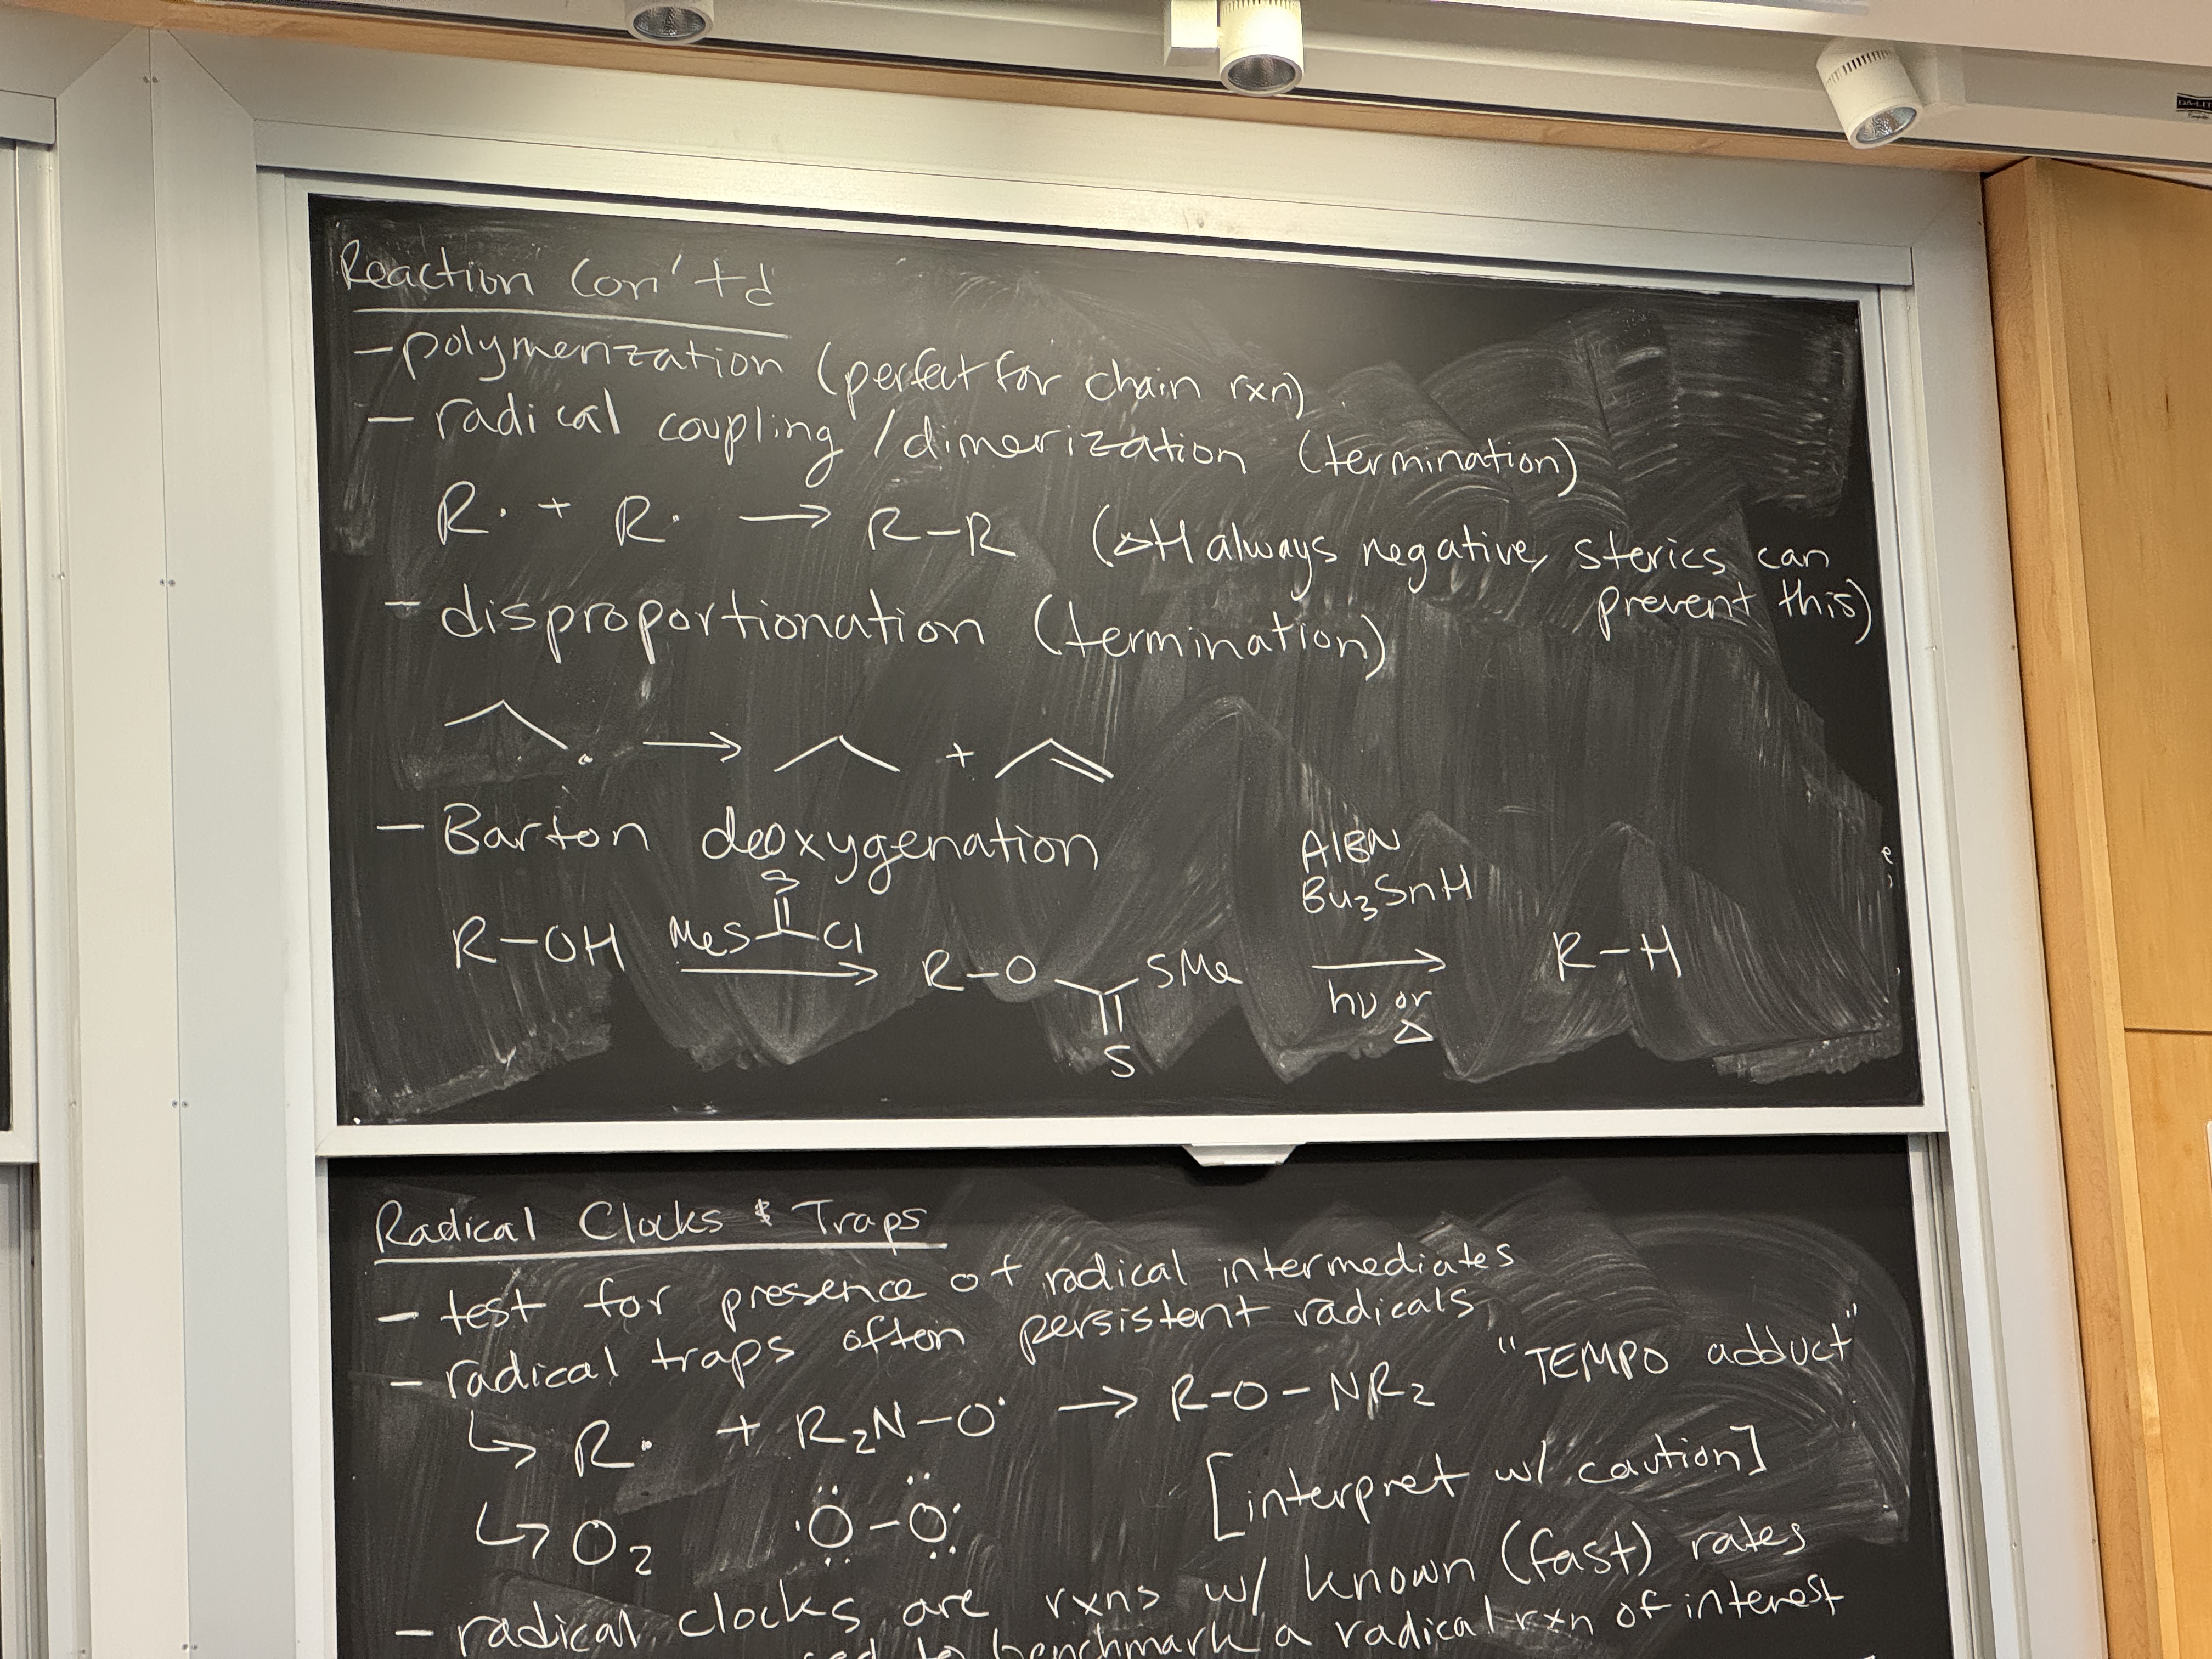 Reaction Con'td
- polymerization (perfect for chain rxn)
- radical coupling/dimerization (termination)
R· + R· → R-R (ΔH always negative, sterics can
prevent this)
- disproportionation (termination)
→ +
- Barton deoxygenation
AIBN
Bu₃SnH
S
R-OH MeS Cl → R-O SMe → R-H
S
hν or
Δ
Radical Clocks & Traps
- test for presence of radical intermediates
- radical traps often persistent radicals
"TEMPO adduct"
↳ R· + R₂N-O· → R-O-NR₂
[interpret w/ caution]
↳ O₂ ·Ö-Ö·
- radical clocks are rxns w/ known (fast) rates
to benchmark a radical rxn of interest
DA-LITE